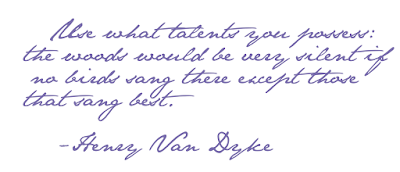 Use what talents you possess:
the woods would be very silent if
no birds sang there except those
that sang best.
-Henry Van Dyke